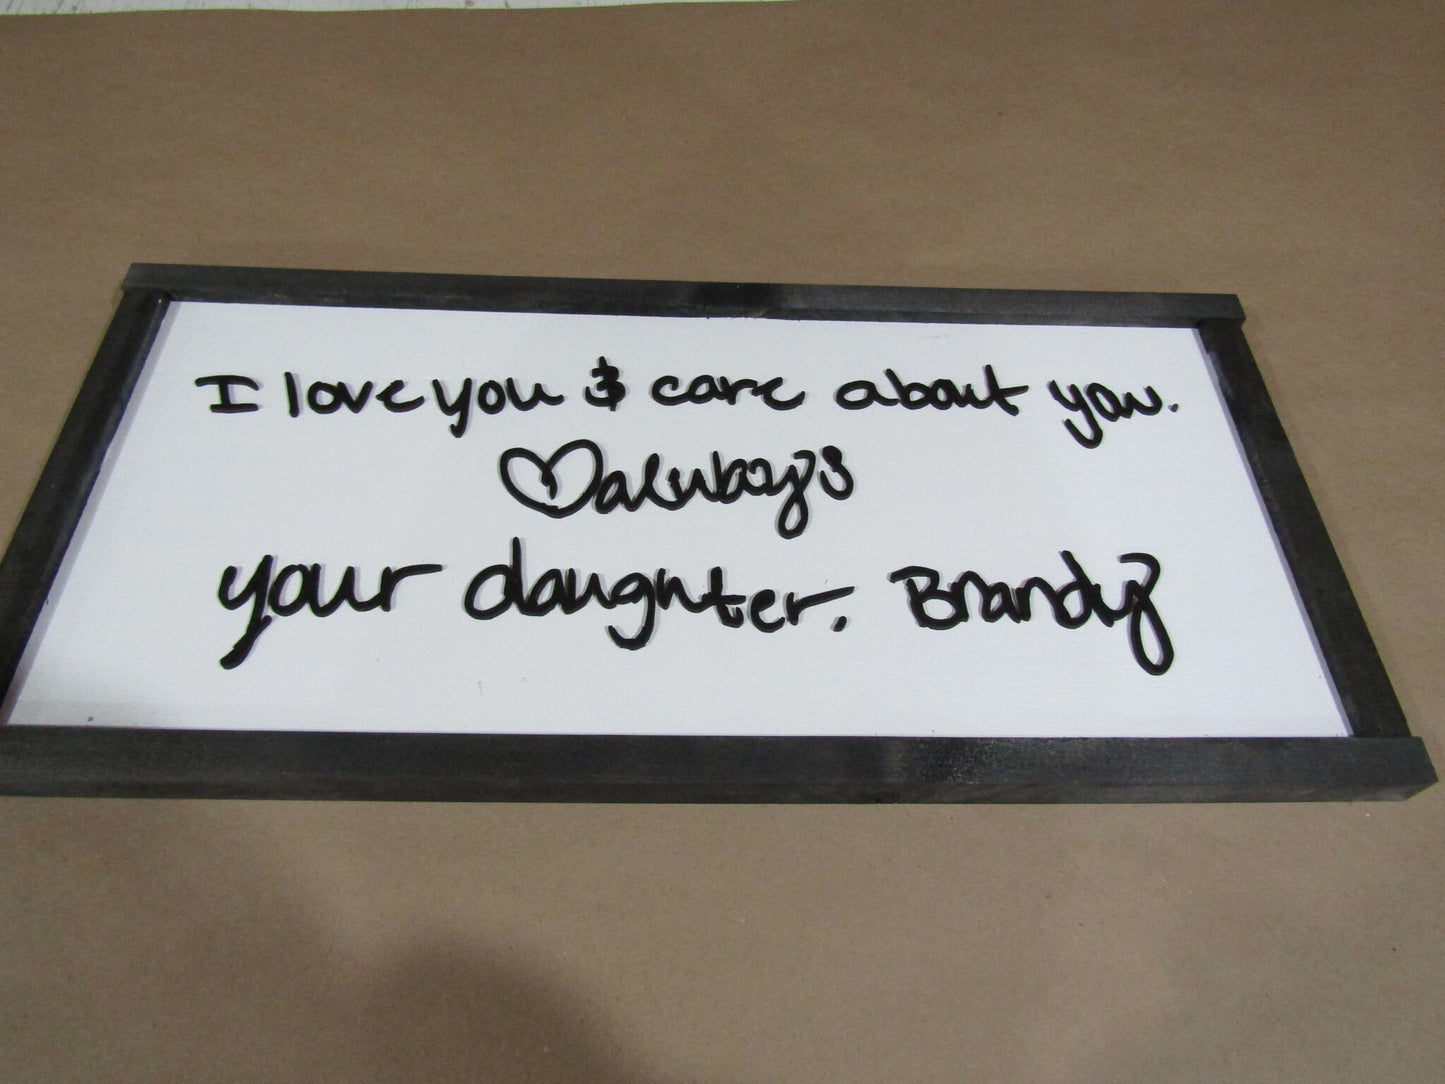 I love you & care about you.
♡ always
your daughter. Brandy